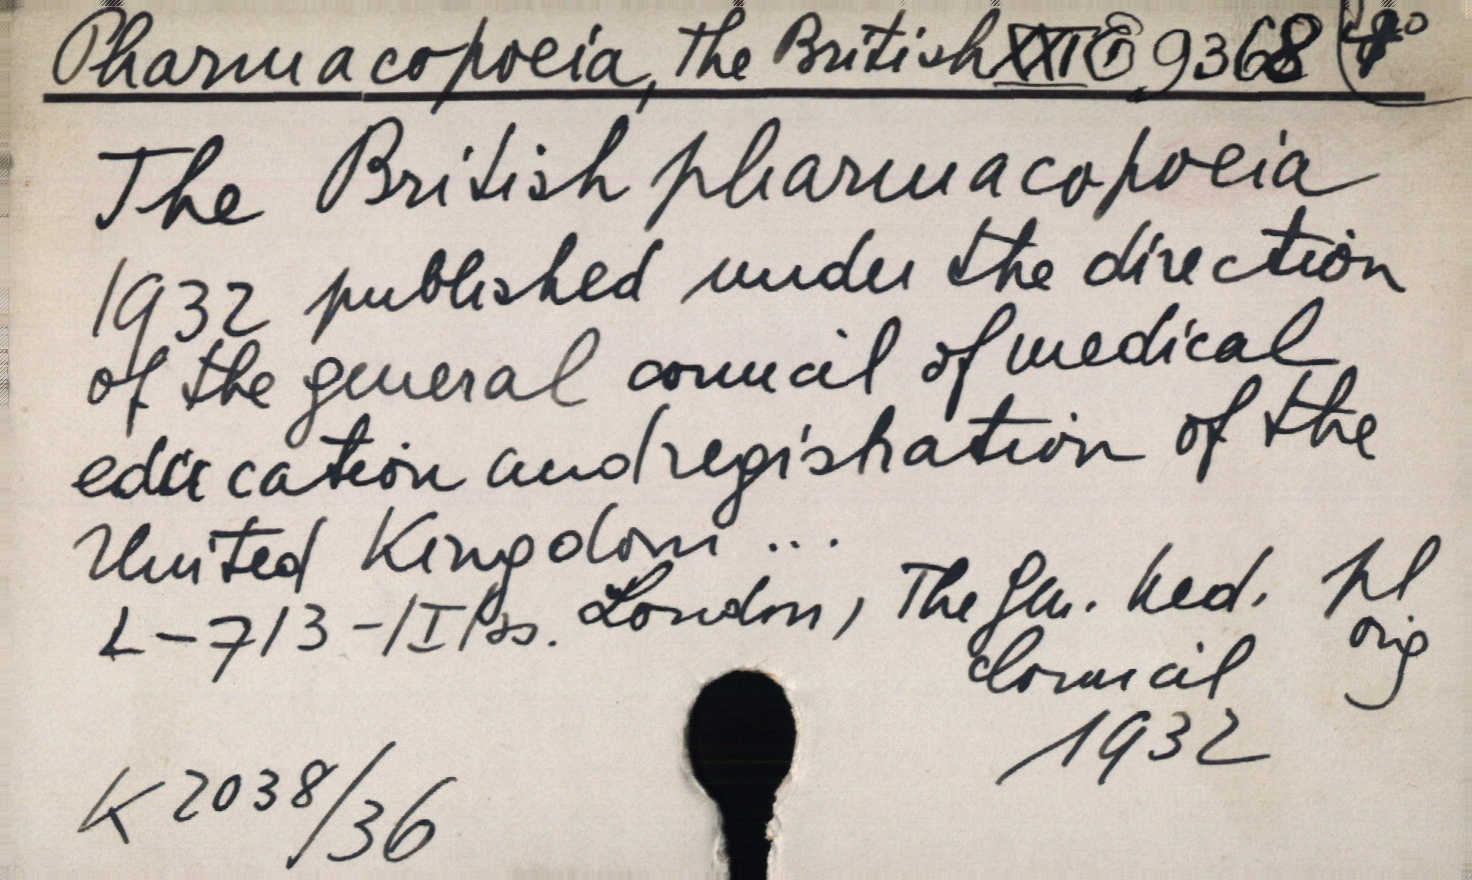 Pharmacopoeia, the British XXI E 9368
The British pharmacopoeia
1932 published under the direction
of the general council of medical
education and registration of the
United Kingdom ...
L-713-/I/ss. London, The Gen. Med. pl
Council orig
1932
K 2038/36